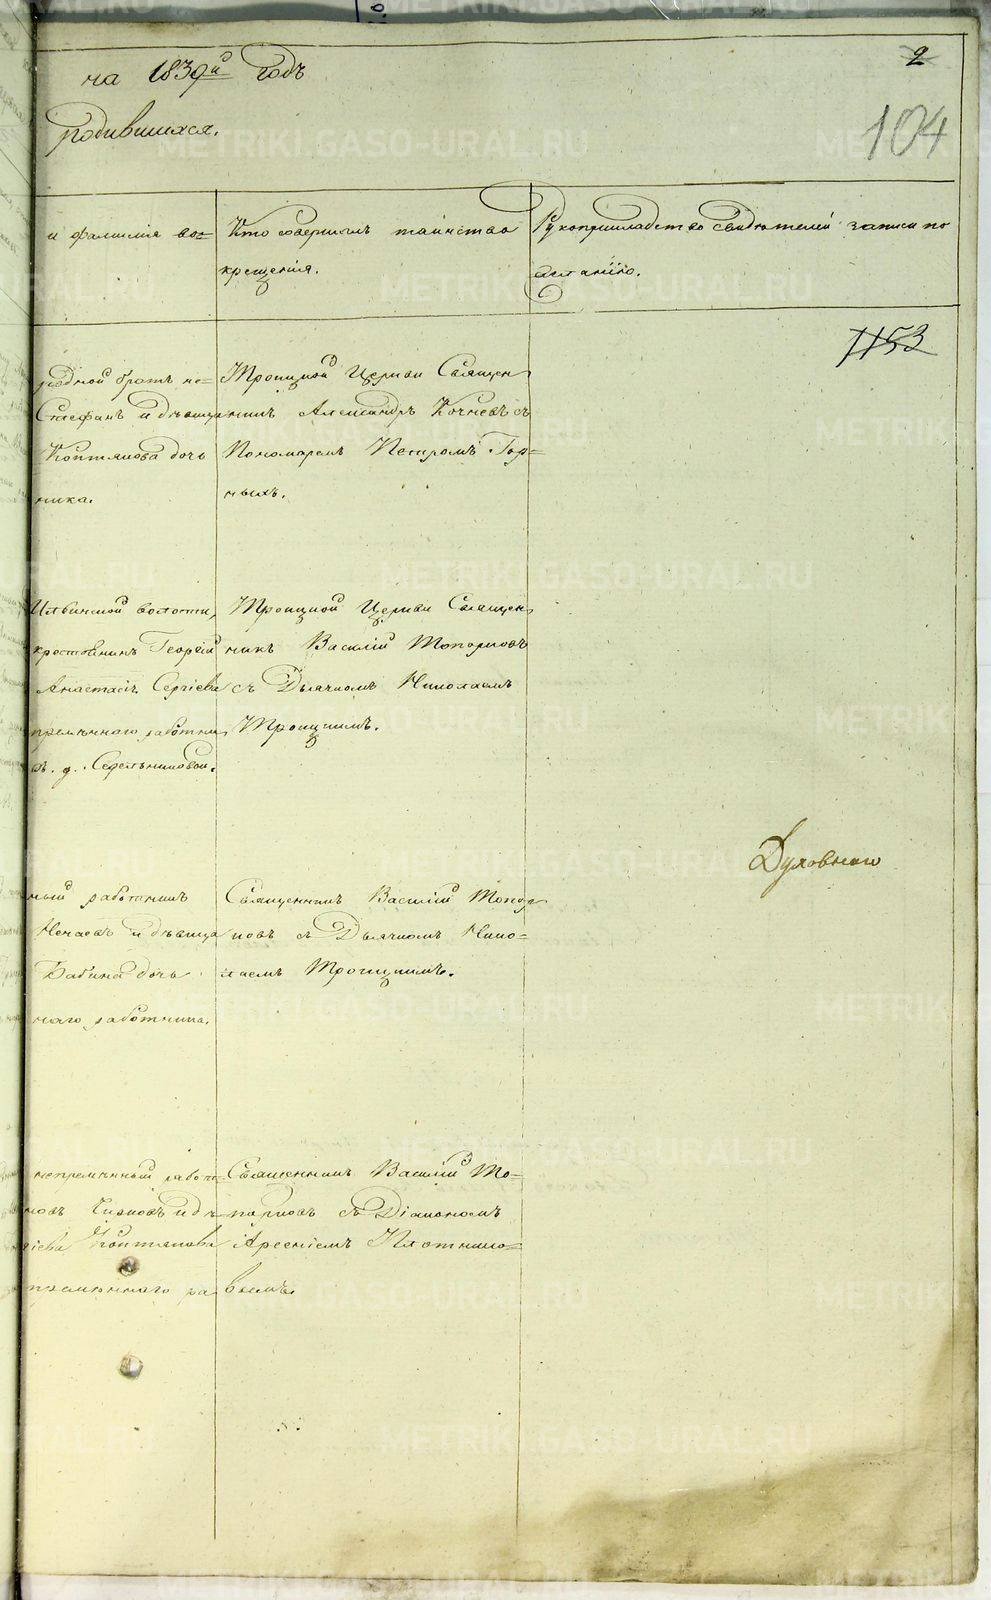 2
на 1839й годъ
104
родившихся.
и фамилія во=
Кто совершилъ таинство
крещенія.
Рукоприкладство свидѣтелей записи по
желанію.
1153
родной братъ не=
Стефанъ и дѣвица
Коптякова дочь
ника.
Троицкой Церкви Священ
никъ Александръ Кочневъ съ
Пономаремъ Петромъ Гор=
ныхъ.
Ильинской волости,
крестьянинъ Георгій
Анастасія Сергіева
премѣннаго работни
въ д. Седельниковой.
Троицкой Церкви Священ
никъ Василій Топорковъ
съ Дьячкомъ Николаемъ
Троицкимъ.
Духовнаго
ный работникъ
Ненаевъ и дѣвица
Бабина дочь
наго работника.
Священникъ Василій Топор
ковъ съ Дьячкомъ Нико=
лаемъ Троицкимъ.
непремѣнный работ=
новъ и дѣ
гіева Коптякова
премѣннаго ра
Священникъ Василій То=
порковъ съ Діакономъ
Арсеніемъ Плотнико=
вымъ.
METRIKI.GASO-URAL.RU